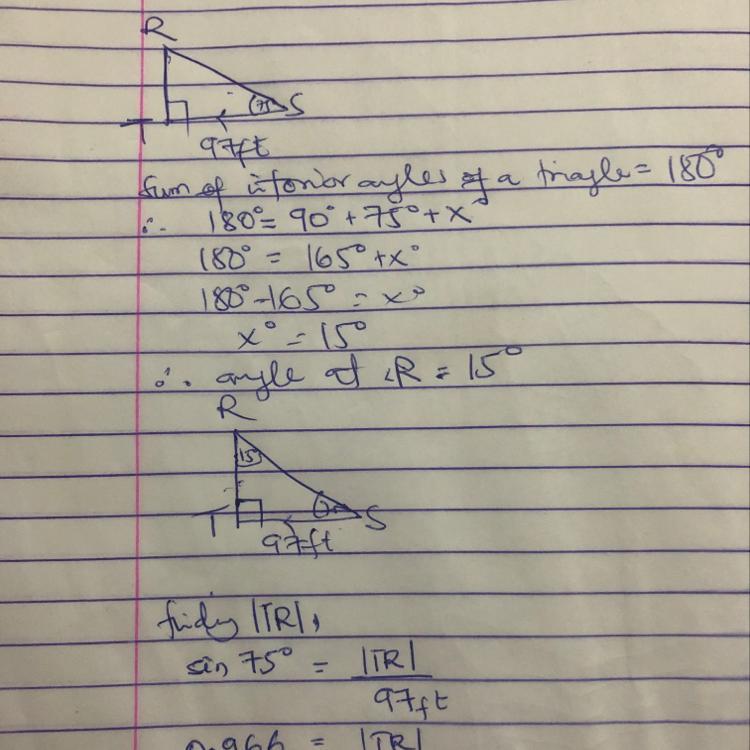 R
75°
T S
97ft
Sum of interior angles of a triagle = 180°
∴ 180° = 90° + 75° + x°
180° = 165° + x°
180° - 165° = x°
x° = 15°
∴ angle at <R = 15°
R
15
T S
97ft
findy |TR|,
sin 75° = |TR|
97ft
0.966 = |TR|